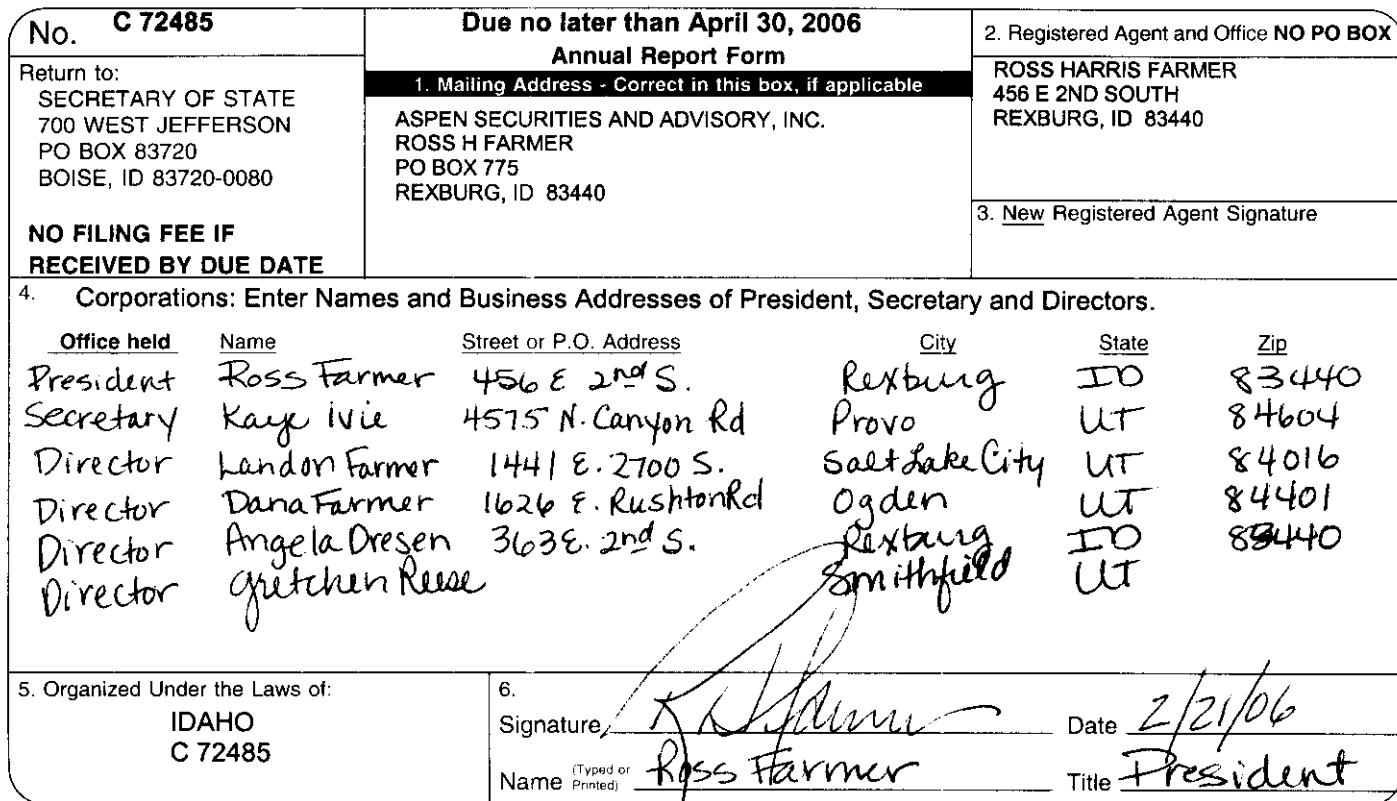 No. C 72485
Return to:
SECRETARY OF STATE
700 WEST JEFFERSON
PO BOX 83720
BOISE, ID 83720-0080
NO FILING FEE IF
RECEIVED BY DUE DATE
Due no later than April 30, 2006
Annual Report Form
1. Mailing Address - Correct in this box, if applicable
ASPEN SECURITIES AND ADVISORY, INC.
ROSS H FARMER
PO BOX 775
REXBURG, ID 83440
2. Registered Agent and Office NO PO BOX
ROSS HARRIS FARMER
456 E 2ND SOUTH
REXBURG, ID 83440
3. New Registered Agent Signature
4. Corporations: Enter Names and Business Addresses of President, Secretary and Directors.
Office held Name Street or P.O. Address City State Zip
President Ross Farmer 456 E 2nd S. Rexburg ID 83440
Secretary Kaye Ivie 4575 N. Canyon Rd Provo UT 84604
Director Landon Farmer 1441 E. 2700 S. Salt Lake City UT 84016
Director Dana Farmer 1626 E. Rushton Rd Ogden UT 84401
Director Angela Dresen 363 E. 2nd S. Rexburg ID 83440
Director Gretchen Reese Smithfield UT
5. Organized Under the Laws of:
IDAHO
C 72485
6.
Signature Date 2/21/06
Name (Typed or Printed) Ross Farmer Title President